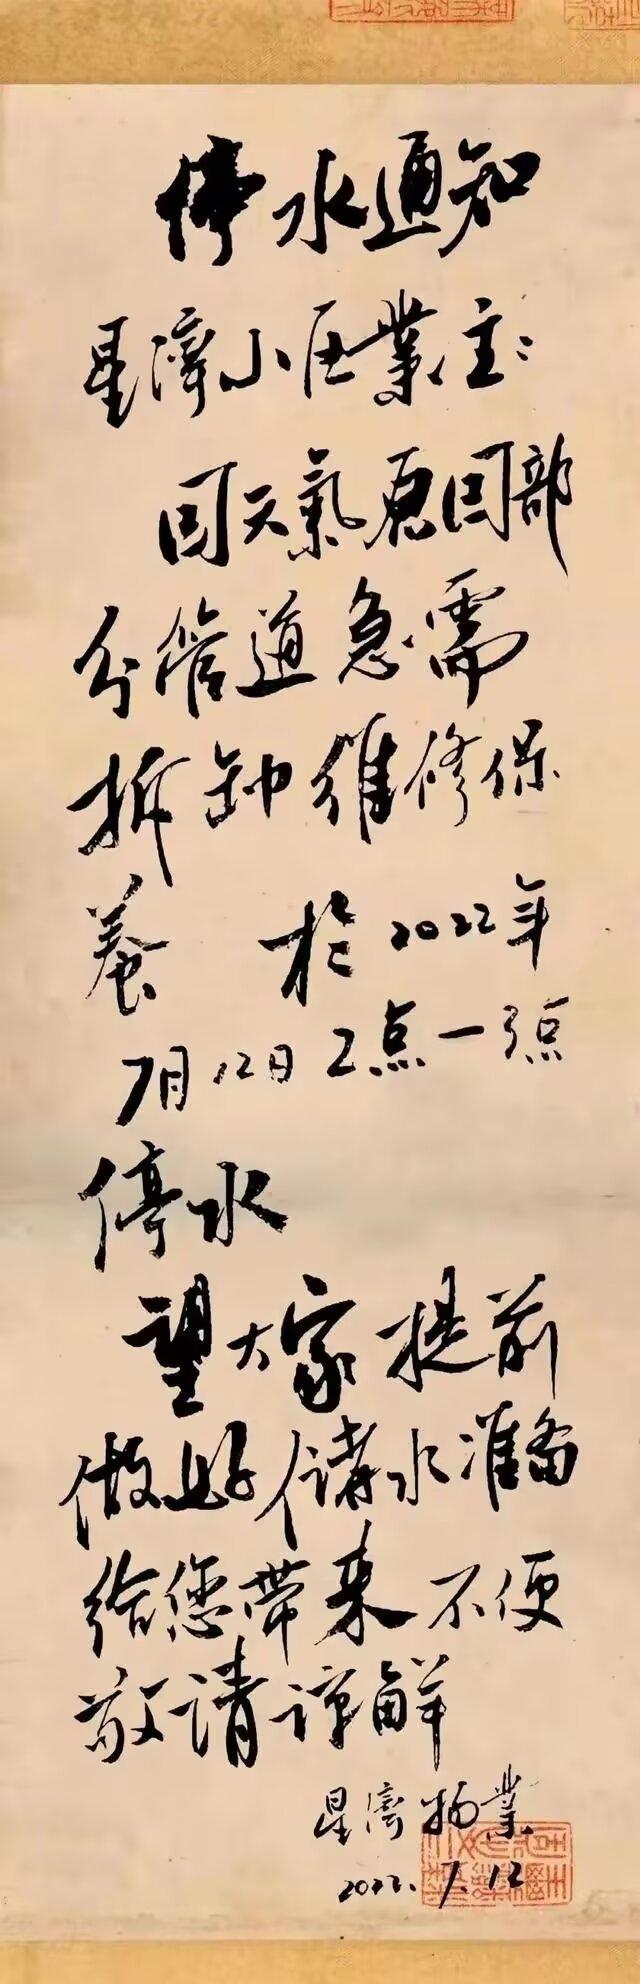 停水通知
星濟小区業主:
因天氣原因部
分管道急需
拆卸维修保
養 於2022年
7月12日2点一3点
停水
望大家提前
做好储水准备
给您带来不便
敬请谅解
星濟物業
2022.7.12